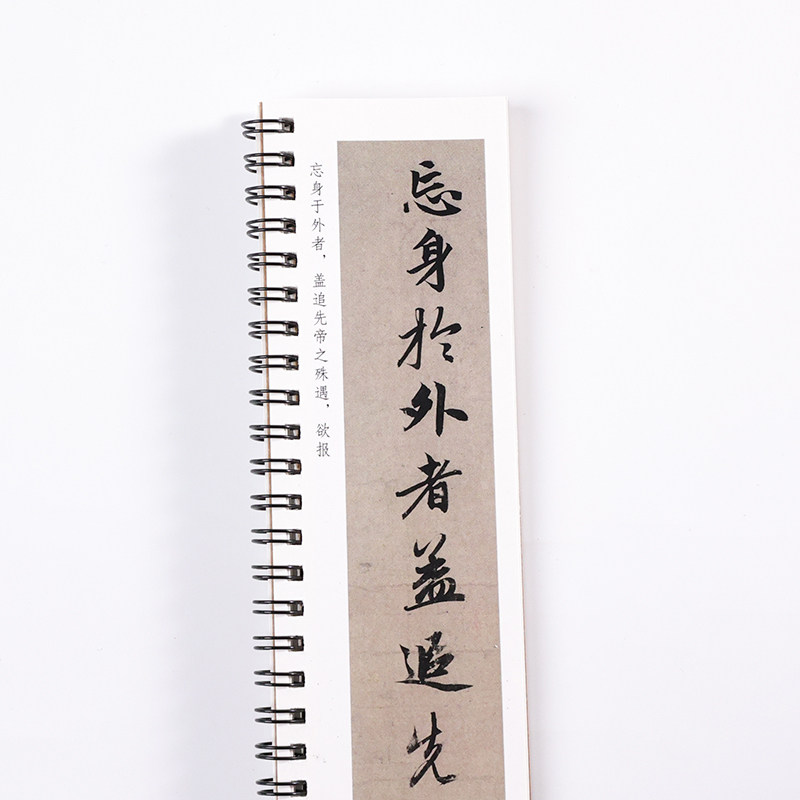 忘身于外者，盖追先帝之殊遇，欲报
忘身於外者盖追先